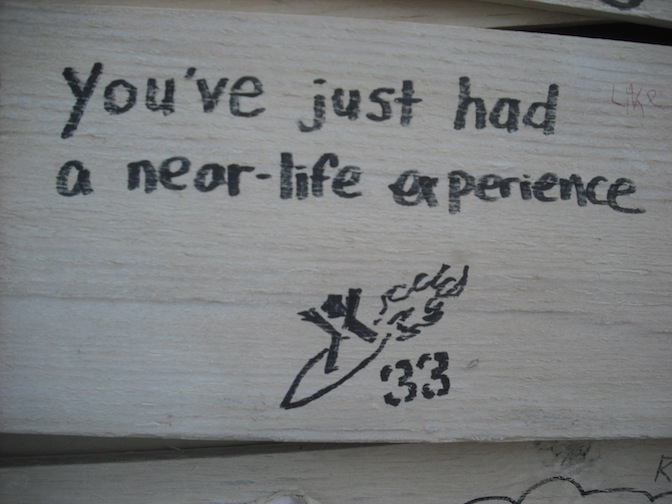 You've just had
a near-life experience
33